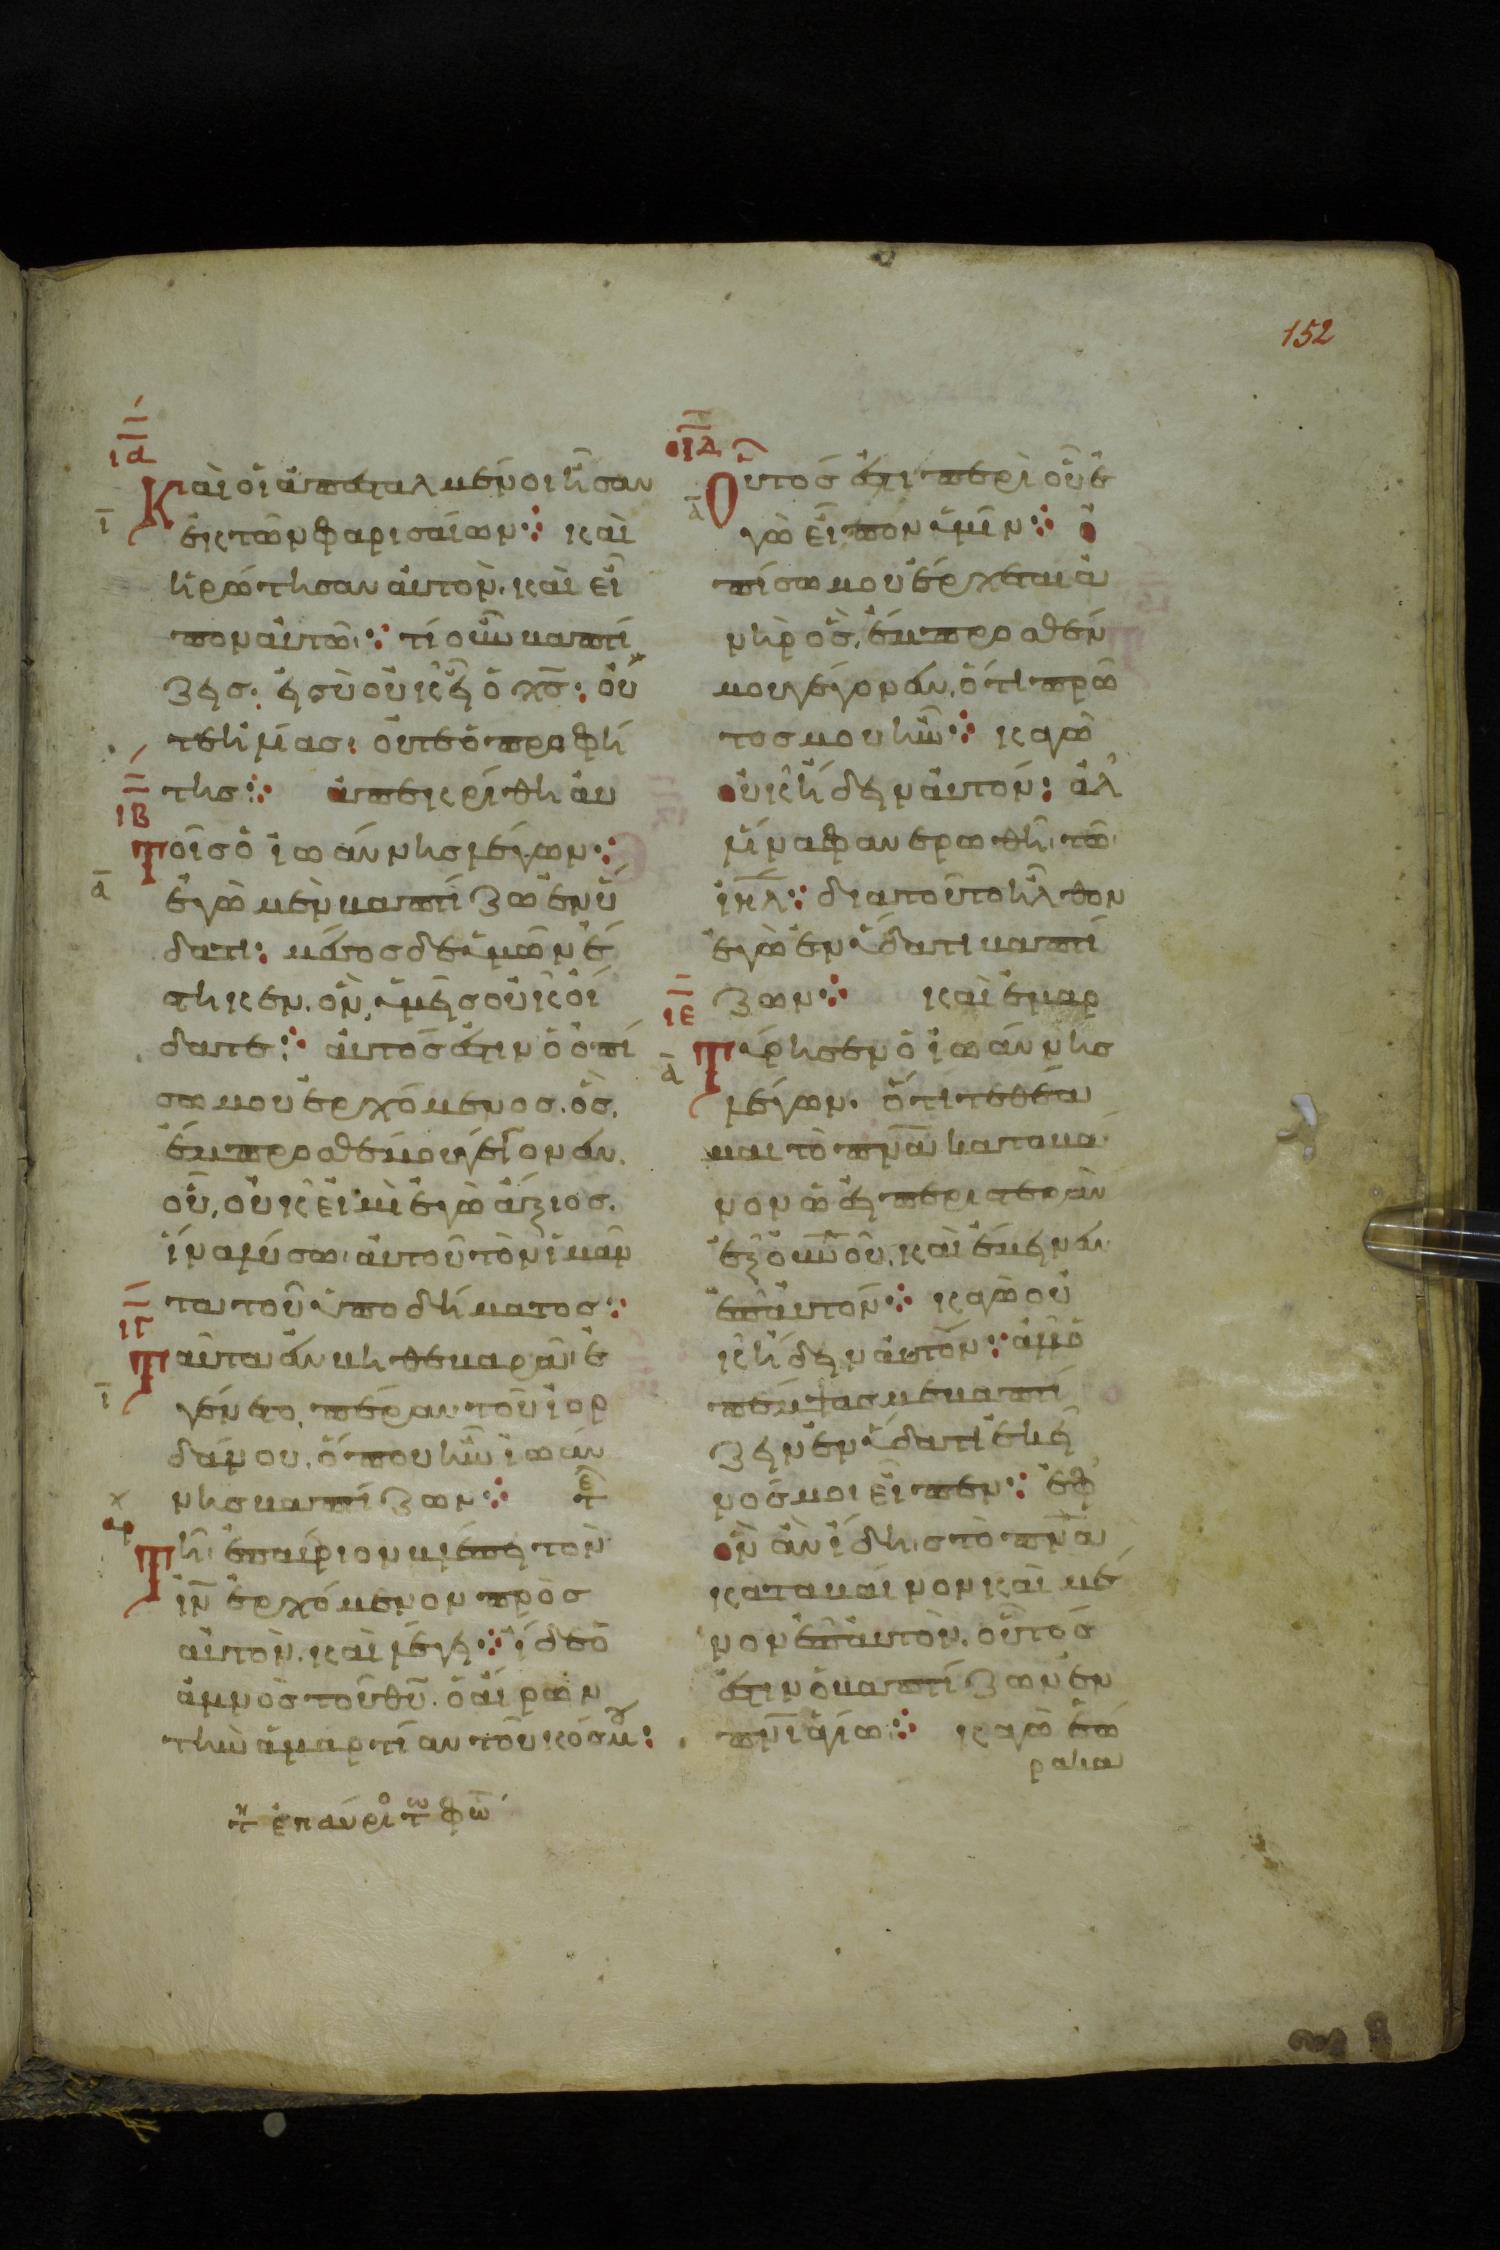 152
ια
Καὶ οἱ ἀπεσταλμένοι ἦσαν
ι
ἐκ τῶν φαρισαίων· καὶ
ἠρώτησαν αὐτὸν. καὶ εἶ
πον αὐτῶ· τί οὖν βαπτί
ζεις· εἰ σὺ οὐκ εἶ ὁ χς· οὔ
τε ἠλίας· οὔτε ὁ προφή
της· ἀπεκρίθη αὐ
ιβ
Τοῖς ὁ ἰωάννης λέγων·
α
ἐγὼ μὲν βαπτίζω ἐν ὕ
δατι· μέσος δὲ ὑμῶν ἕ
στηκεν. ὃν, ὑμεῖς οὐκ οἴ
δατε· αὐτός ἐστιν ὁ ὀπί
σω μου ἐρχόμενος. ὃς,
ἔμπροσθέν μου γέγονεν.
οὗ, οὐκ εἰμὶ ἐγὼ ἄξιος.
ἵνα λύσω αὐτοῦ τὸν ἱμάν
τα τοῦ ὑποδήματος·
ιγ
Ταῦτα ἐν βηθεβαρᾶ ἐ
ι
γένετο, πέραν τοῦ ἰορ
δάνου, ὅπου ἦν ἰωάν
νης βαπτίζων·
Τῆ ἐπαύριον βλέπει τὸν
ιν ἐρχόμενον πρὸς
αὐτὸν. καὶ λέγει· ἴδε ὁ
ἀμνὸς τοῦ θυ. ὁ αἴρων
τὴν ἁμαρτίαν τοῦ κόσμου·
τη ἐπαύριο τω φω
ιδ
Οὗτός ἐστι περὶ οὗ ἐ
α
γὼ εἶπον ὑμῖν· ὀ
πίσω μου ἔρχεται ἀ
νὴρ ὃς, ἔμπροσθέν
μου γέγονεν, ὅτι πρῶ
τος μου ἦν· καγὼ
οὐκ ἤδειν αὐτόν· ἀλλ
ἵνα φανερωθῆ τῶ
ιηλ· διατοῦτο ἦλθον
ἐγὼ ἐν ὕδατι βαπτί
ζων· καὶ ἐμαρ
ιε
Τύρησεν ὁ ἰωάννης
α
λέγων. ὅτι τεθέα
μαι τὸ πνα καταβαῖ
νον ὡσεὶ περιστερὰν
ἐξ οὐνου, καὶ ἔμεινεν
ἐπ αὐτόν· καγὼ οὐ
κ ἤδειν αὐτόν· ἀλλ ὁ
πέμψας με βαπτί
ζειν ἐν ὕδατι ἐκεῖ
νός μοι εἶπεν· ἐφ
ὃν ἂν ἴδης τὸ πνα
καταβαῖνον καὶ μέ
νον ἐπ αὐτὸν. οὗτός
ἐστιν ὁ βαπτίζων ἐν
πνι ἁγίω· καγὼ ἑώ
ρακα